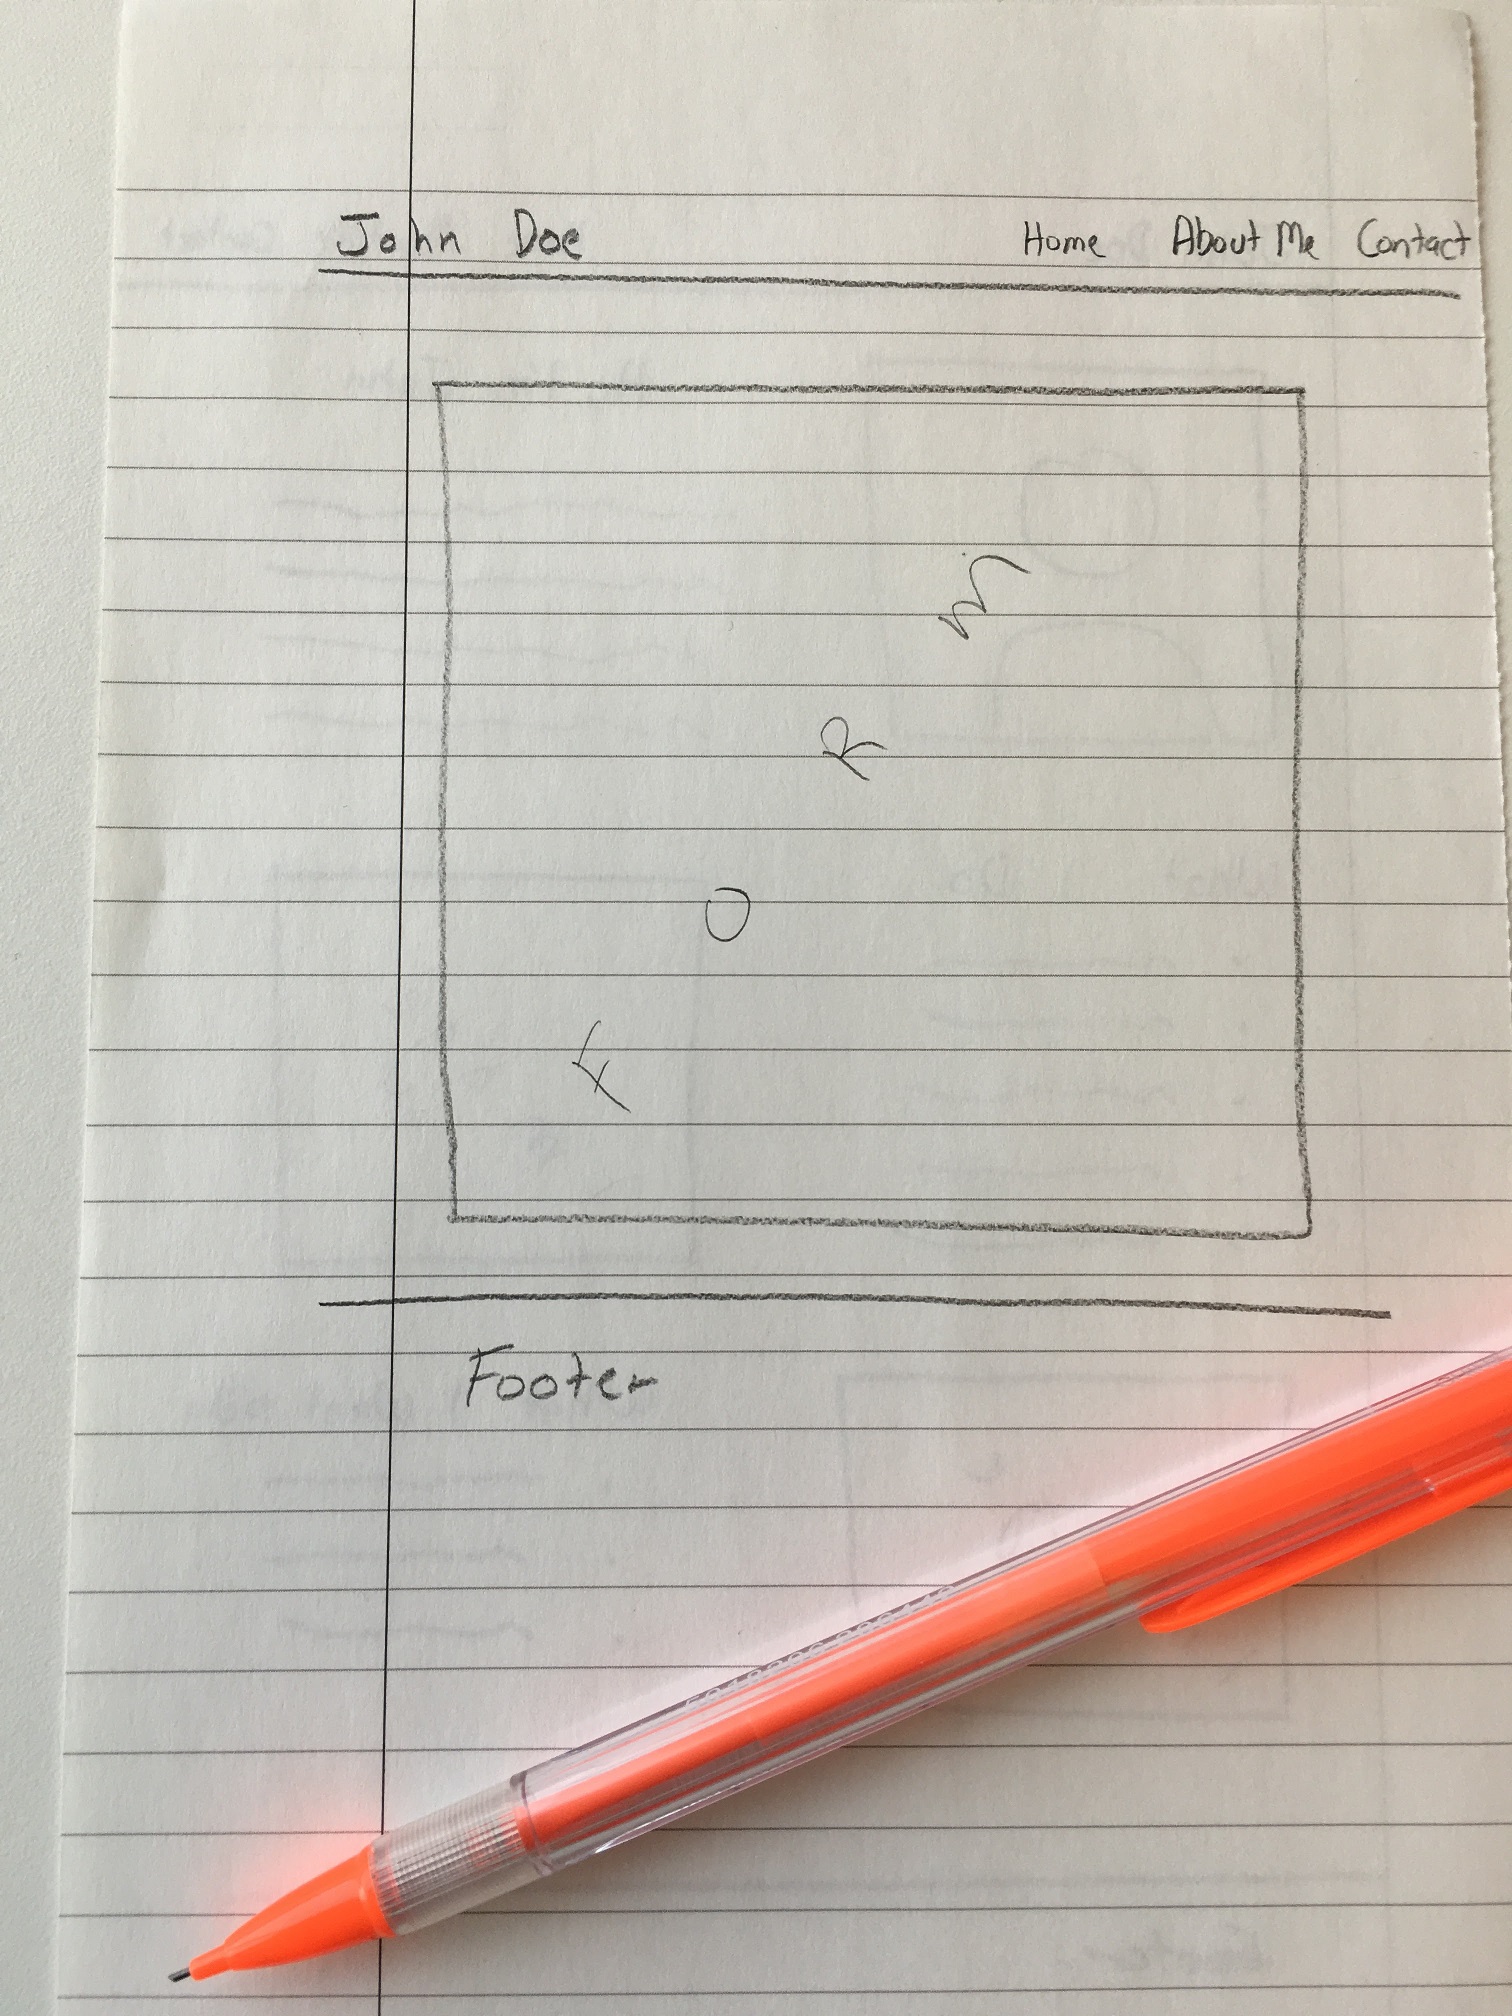 John Doe Home About Me Contact
FORM
Footer